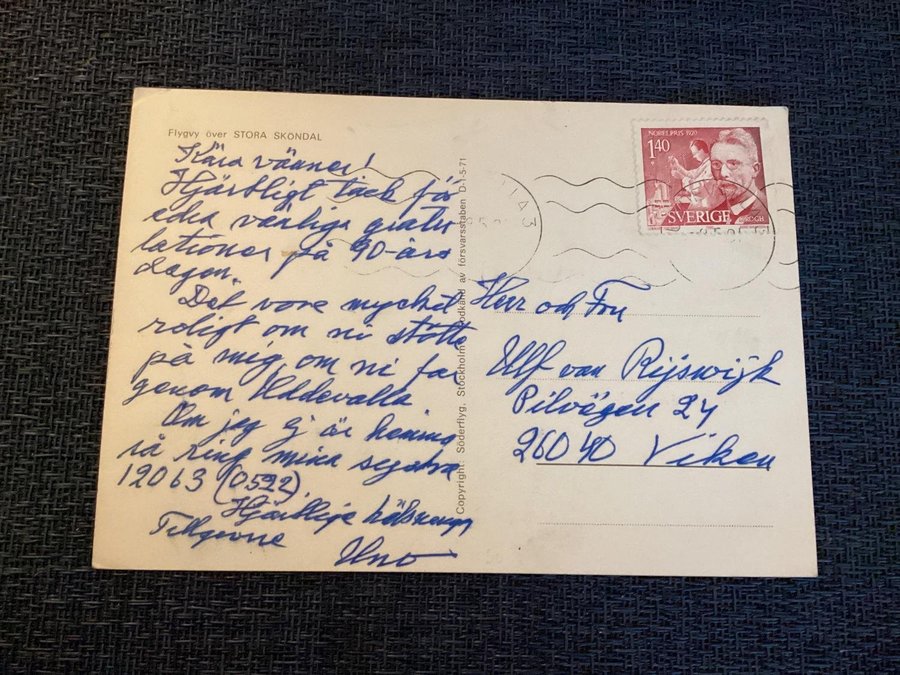 Flygvy över STORA SKÖNDAL
Kära vänner!
Hjärtligt tack för
edra vänliga gratu
lationer på 90-års
dagen.
Det vore mycket
roligt om ni stötte
på mig om ni far
genom Uddevalla
Om jag ej är hemma
så ring mina
12063 (0522)
Hjärtliga hälsningar
Tillgivne
Uno
Copyright: Söderflyg, Stockholm Godkänd av försvarsstaben D-1-5-71
NOBELPRIS 1920
140
SVERIGE
KROGH
Herr och Fru
Ulf van Rijswijk
Pilvägen 24
260 40 Viken